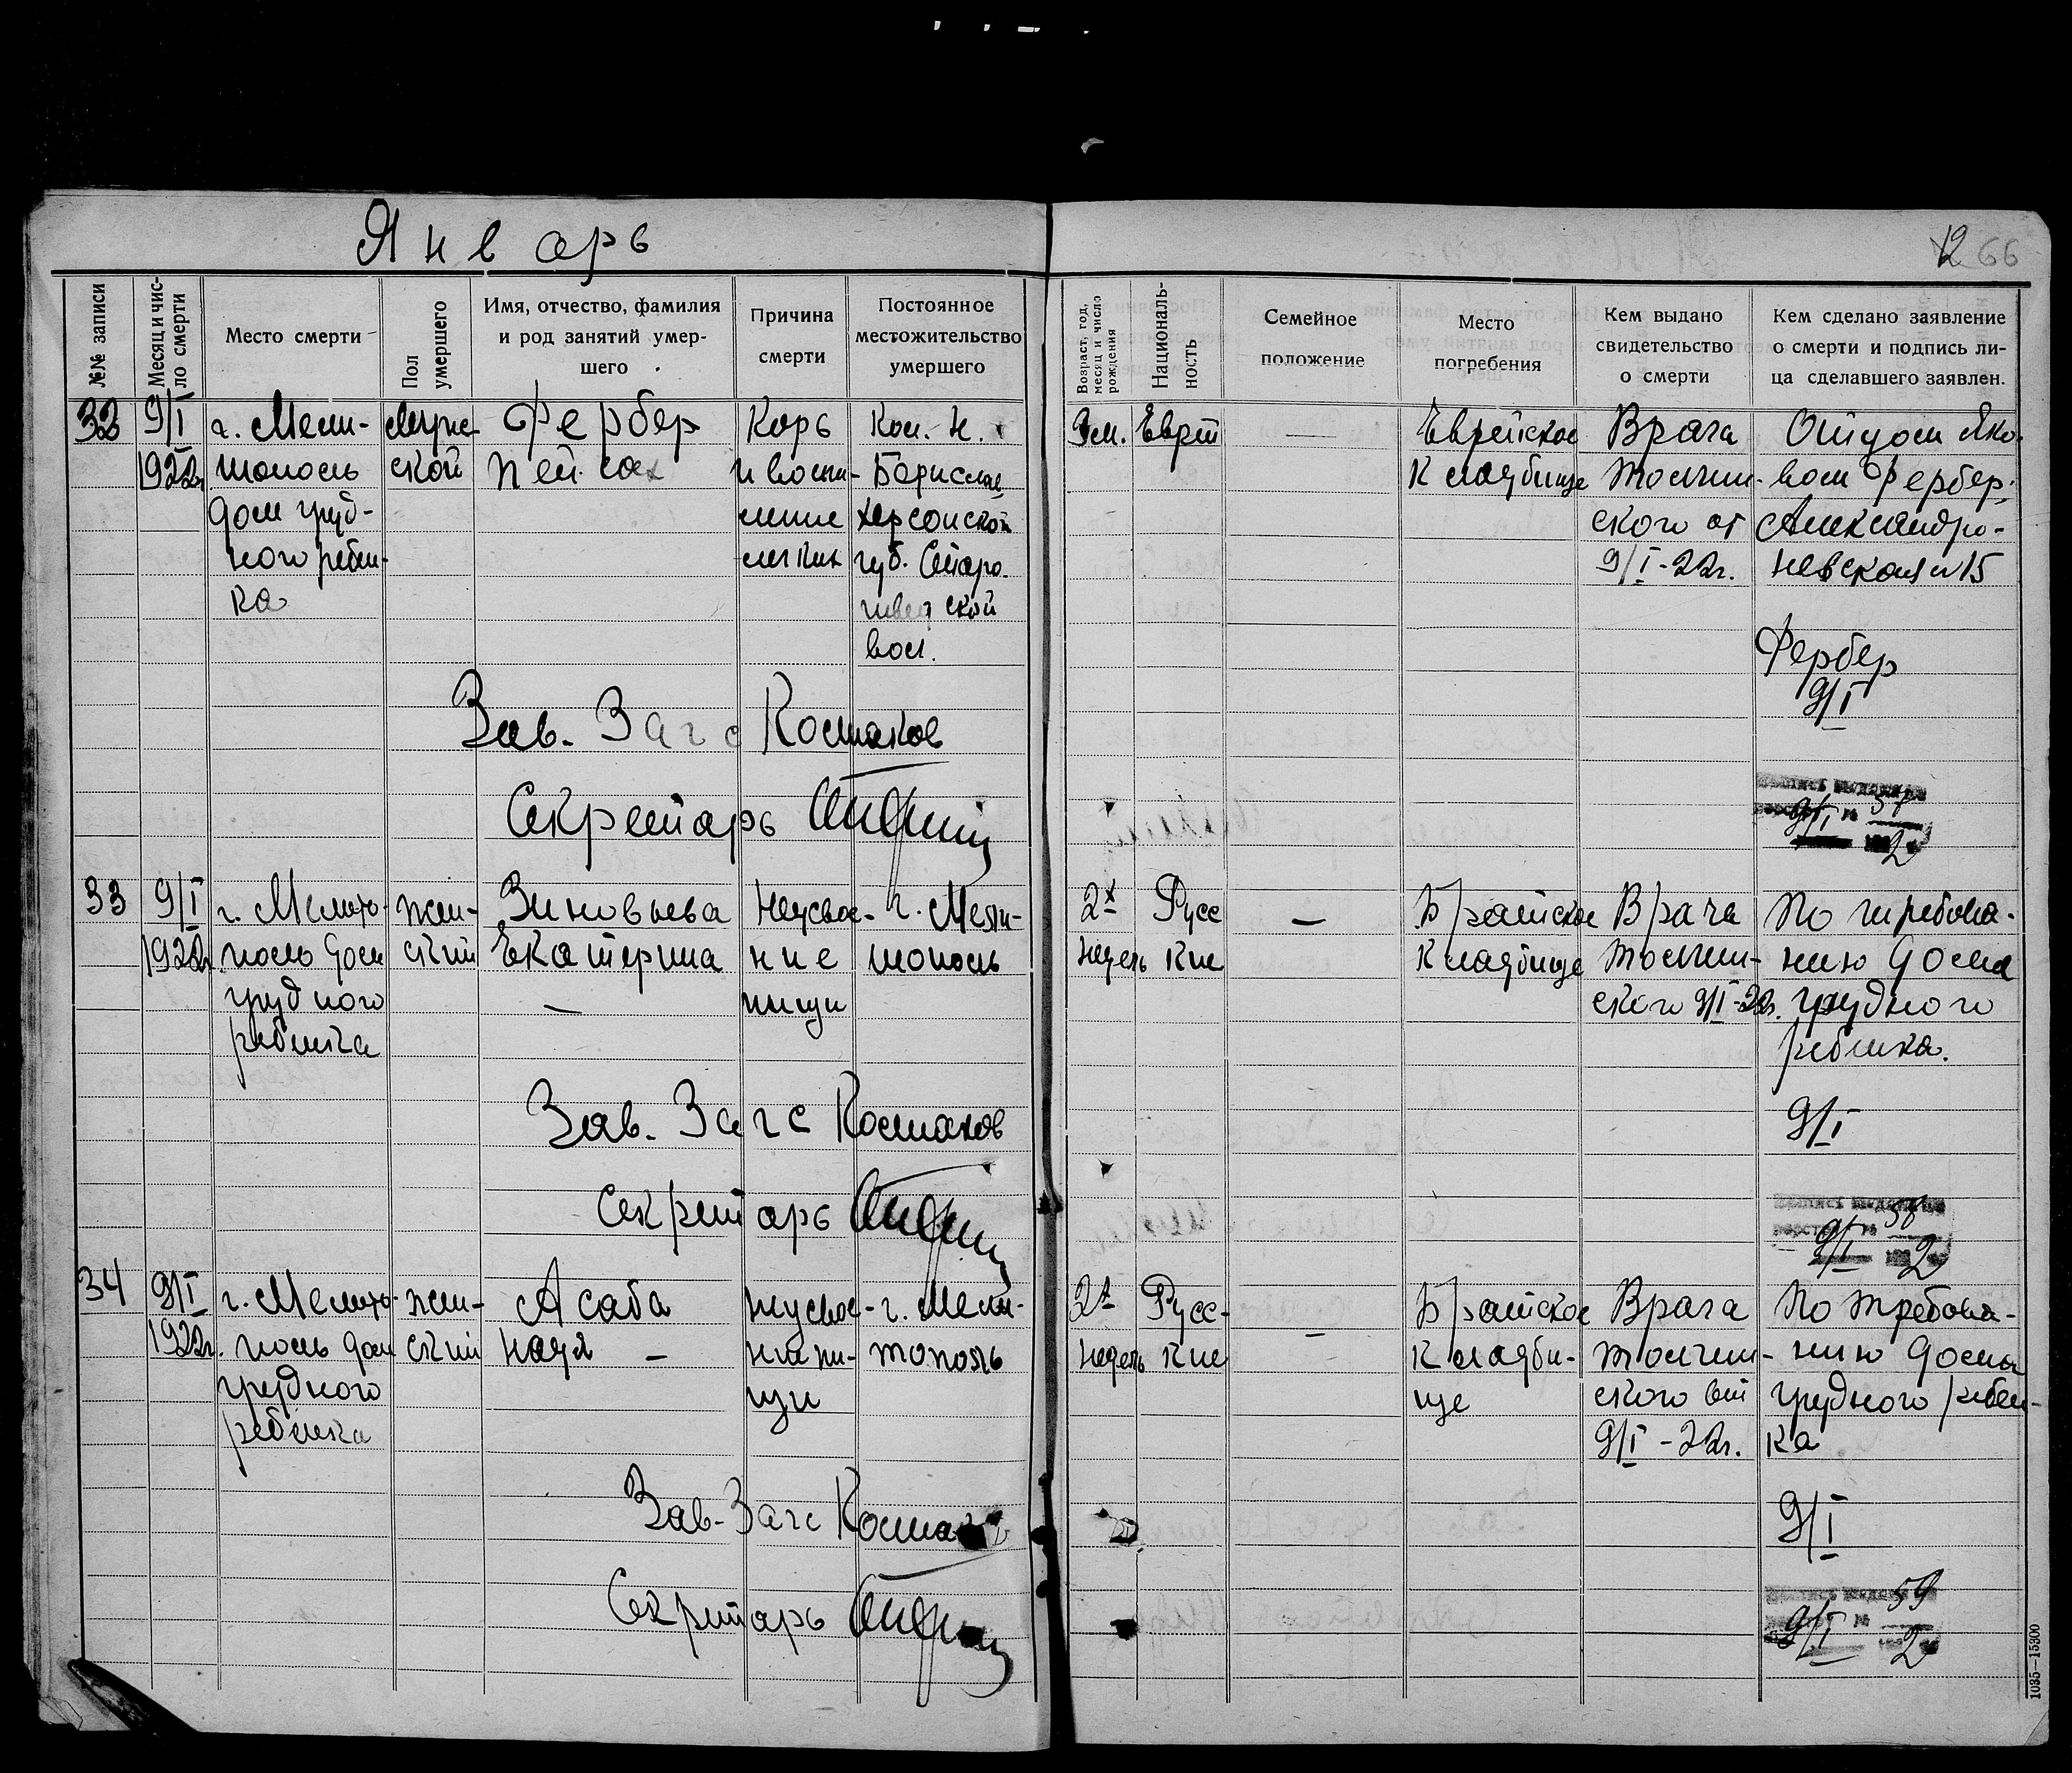 Январь
12 66
№№ записи
Месяц и чис-
ло смерти
Место смерти
Пол
умершего
Имя, отчество, фамилия
и род занятий умер-
шего
Причина
смерти
Постоянное
местожительство
умершего
Возраст, год,
месяц и число
рождения
Националь-
ность
Семейное
положение
Место
погребения
Кем выдано
свидетельство
о смерти
Кем сделано заявление
о смерти и подпись ли-
ца сделавшего заявлен.
32
9/I
1922г
г. Мели-
тополь
дом груд-
ного ребен-
ка
Муж-
ской
Фербер
Пейсах
Корь
и воспа-
ление
легких
Кол. Н.
Берислав
Херсонской
губ. Старо-
ской
вол.
9 м.
Еврей
—
Еврейское
кладбище
Врача
Толчин-
ского от
9/I-22г.
Отцом Яко-
вом Фербер,
Александро-
невская №15
Фербер
9/I
Зав. Загс Костаков
Секретарь
9/I 57
2
33
9/I
1922г.
г. Мелито-
поль дом
грудного
ребенка
жен-
ский
Зиновьева
Екатерина
—
Неусвое-
ние
пищи
г. Мели-
тополь
2х
недель
Русс
кие
—
Братское
кладбище
Врача
Толчин-
ского 9/I-22г.
По требова-
нию дома
грудного
ребенка.
9/I
Зав. Загс Костаков
Секретарь
9/I 58
2
34
9/I
1922г.
г. Мелито-
поль дом
грудного
ребенка
жен-
ский
Асаба
Надя —
неусвое-
ние пи-
щи
г. Мели-
тополь
2х
недель
Русс-
кие
—
Братское
кладби-
ще
Врача
Толчин-
ского от
9/I-22г.
По требова-
нию дома
грудного ребен-
ка
9/I
Зав. Загс
Секретарь
9/I 59
2
1035—15300